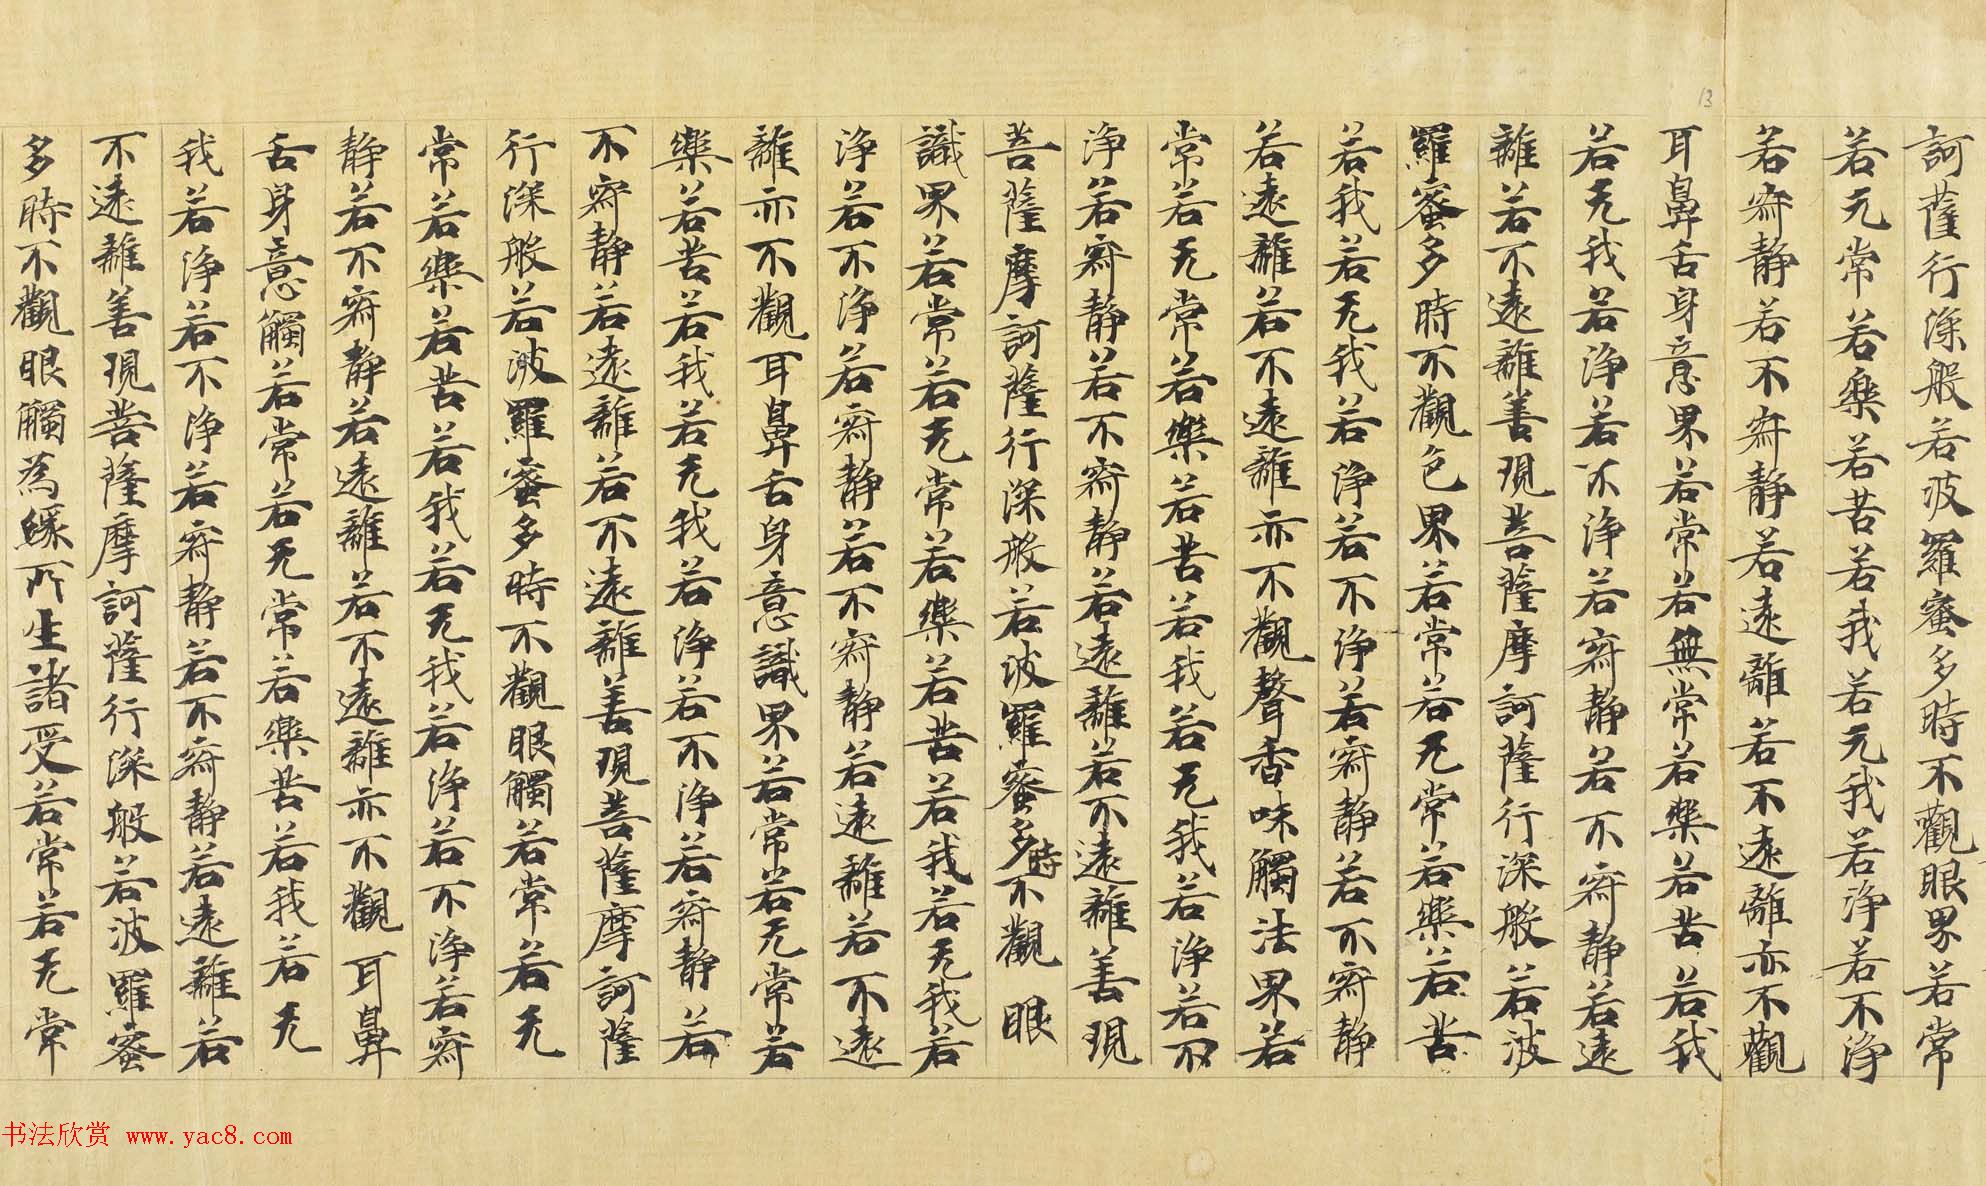 訶薩行深般若波羅蜜多時不觀眼界若常
若无常若樂若苦若我若无我若浄若不浄
若寂静若不寂静若遠離若不遠離亦不觀
耳鼻舌身意界若常若無常若樂若苦若我
若无我若浄若不浄若寂静若不寂静若遠
離若不遠離善現菩薩摩訶薩行深般若波
羅蜜多時不觀色界若常若无常若樂若苦
若我若无我若浄若不浄若寂静若不寂静
若遠離若不遠離亦不觀聲香味觸法界若
常若无常若樂若苦若我若无我若浄若不
浄若寂静若不寂静若遠離若不遠離善現
菩薩摩訶薩行深般若波羅蜜多時不觀眼
識界若常若无常若樂若苦若我若无我若
浄若不浄若寂静若不寂静若遠離若不遠
離亦不觀耳鼻舌身意識界若常若无常若
樂若苦若我若无我若浄若不浄若寂静若
不寂静若遠離若不遠離善現菩薩摩訶薩
行深般若波羅蜜多時不觀眼觸若常若无
常若樂若苦若我若无我若浄若不浄若寂
静若不寂静若遠離若不遠離亦不觀耳鼻
舌身意觸若常若无常若樂苦若我若无
我若浄若不浄若寂静若不寂静若遠離若
不遠離善現菩薩摩訶薩行深般若波羅蜜
多時不觀眼觸為緣所生諸受若常若无常
13
书法欣赏 www.yac8.com